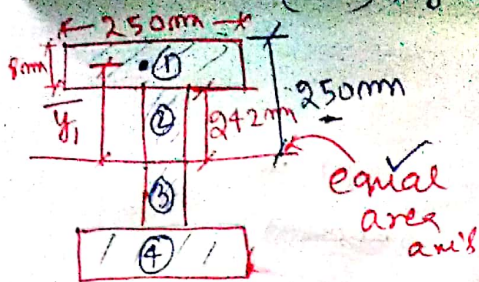 250mm
8mm
①
y̅₁
②
242mm
250mm
③
equal
area
axis
④